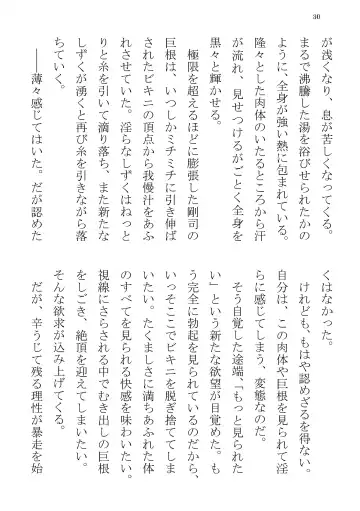 30
が浅くなり、息が苦しくなってくる。
まるで沸騰した湯を浴びせられたかの
ように、全身が強い熱に包まれている。
隆々とした肉体のいたるところから汗
が流れ、見せつけるがごとく全身を
黒々と輝かせる。
極限を超えるほどに膨張した剛司の
巨根は、いつしかミチミチに引き伸ば
されたビキニの頂点から我慢汁をあふ
れさせていた。淫らなしずくはねっと
りと糸を引いて滴り落ち、また新たな
しずくが湧くと再び糸を引きながら落
ちていく。
――薄々感じてはいた。だが認めた
くはなかった。
けれども、もはや認めざるを得ない。
自分は、この肉体や巨根を見られて淫
らに感じてしまう、変態なのだ。
そう自覚した途端、「もっと見られた
い」という新たな欲望が目覚めた。も
う完全に勃起を見られているのだから、
いっそここでビキニを脱ぎ捨ててしま
いたい。たくましさに満ちあふれた体
のすべてを見られる快感を味わいたい。
視線にさらされる中でむき出しの巨根
をしごき、絶頂を迎えてしまいたい。
そんな欲求が込み上げてくる。
だが、辛うじて残る理性が暴走を始